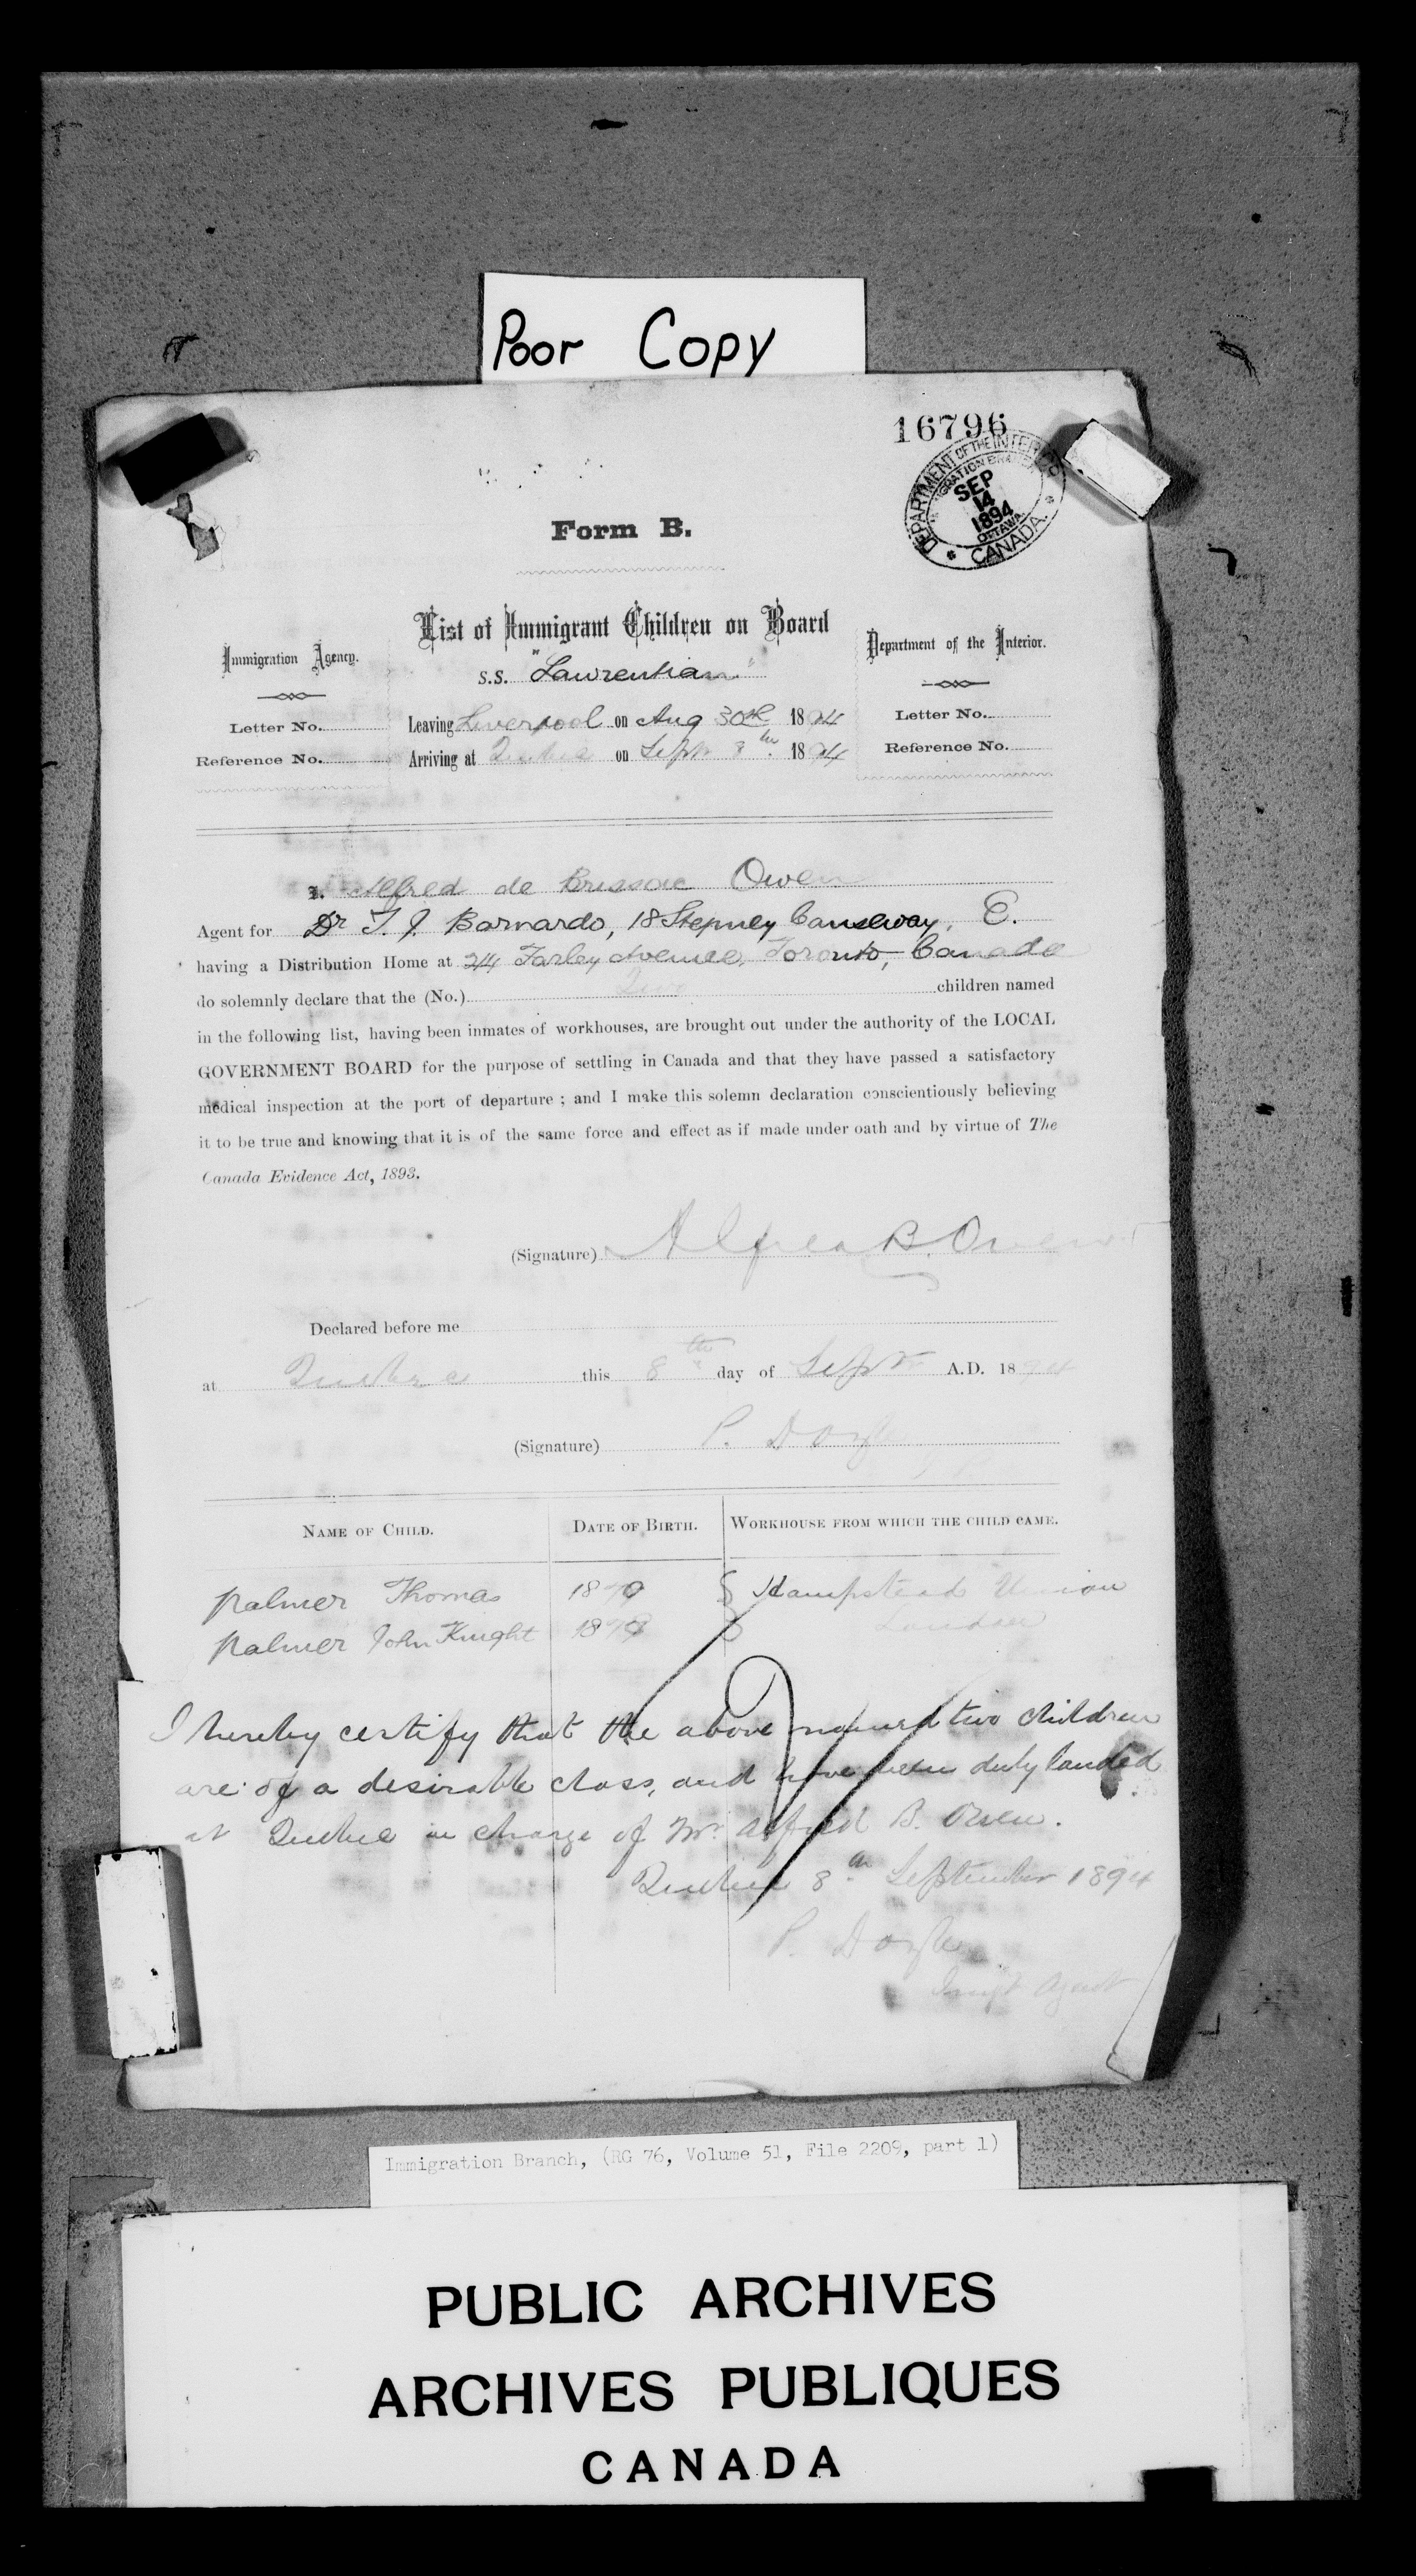 Poor Copy
16796
DEPARTMENT OF THE INTERIOR
IMMIGRATION BRANCH
SEP
14
1894
OTTAWA
* CANADA. *
Form B.
List of Immigrant Children on Board
Immigration Agency.
Department of the Interior.
S.S. "Laurentian"
Letter No.
Leaving Liverpool on Aug 30th 1894
Letter No.
Reference No.
Arriving at Quebec on Septr 8th 1894
Reference No.
I. Alfred de Brissac Owen
Agent for Dr T. J. Barnardo, 18 Stepney Causeway, E.
having a Distribution Home at 214 Farley Avenue, Toronto, Canada
do solemnly declare that the (No.) Two children named
in the following list, having been inmates of workhouses, are brought out under the authority of the LOCAL
GOVERNMENT BOARD for the purpose of settling in Canada and that they have passed a satisfactory
medical inspection at the port of departure ; and I make this solemn declaration conscientiously believing
it to be true and knowing that it is of the same force and effect as if made under oath and by virtue of The
Canada Evidence Act, 1893.
(Signature) Alfred B. Owen
Declared before me
at Quebec this 8th day of Septr A.D. 1894
(Signature) P. Doyle
NAME OF CHILD. DATE OF BIRTH. WORKHOUSE FROM WHICH THE CHILD CAME.
Palmer Thomas Hampstead Union
Palmer John Knight London
I hereby certify that the above named two children
are of a desirable class, and have been duly landed
at Quebec in charge of Mr. Alfred B. Owen.
Quebec 8th September 1894
P. Doyle
Immgt Agent
Immigration Branch, (RG 76, Volume 51, File 2209, part 1)
PUBLIC ARCHIVES
ARCHIVES PUBLIQUES
CANADA